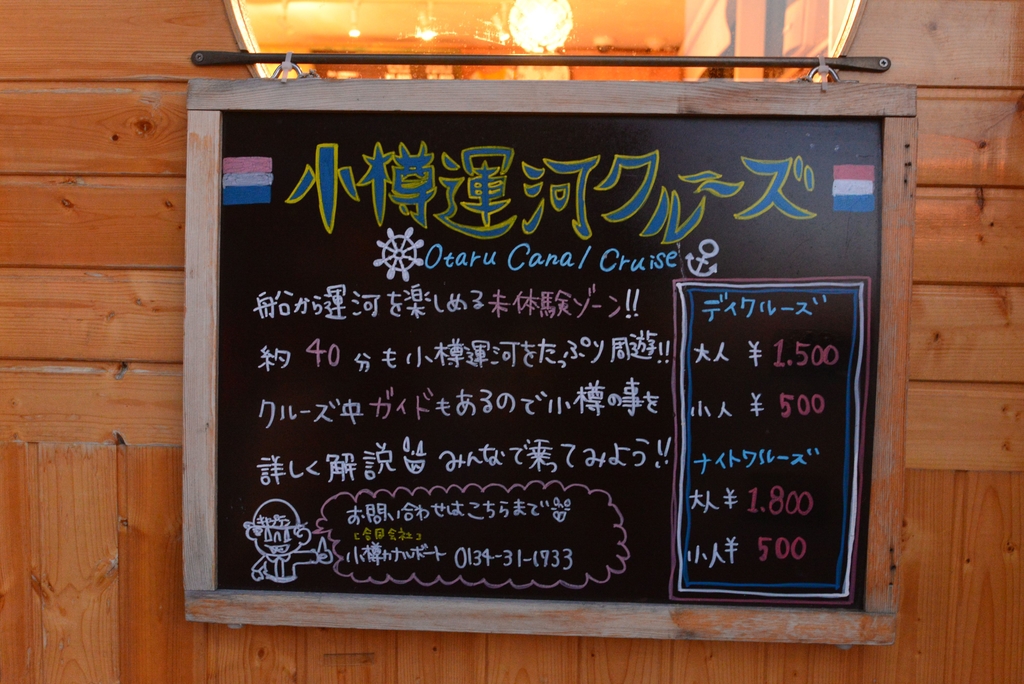 小樽運河クルーズ
Otaru Canal Cruise
船から運河を楽しめる未体験ゾーン!!
約40分も小樽運河をたっぷり周遊!!
クルーズ中ガイドもあるので小樽の事を
詳しく解説 みんなで乗ってみよう!!
お問い合わせはこちらまで
[合同会社]
小樽カナルボート 0134-31-1733
デイクルーズ
大人 ¥1.500
小人 ¥500
ナイトクルーズ
大人 ¥1.800
小人 ¥500